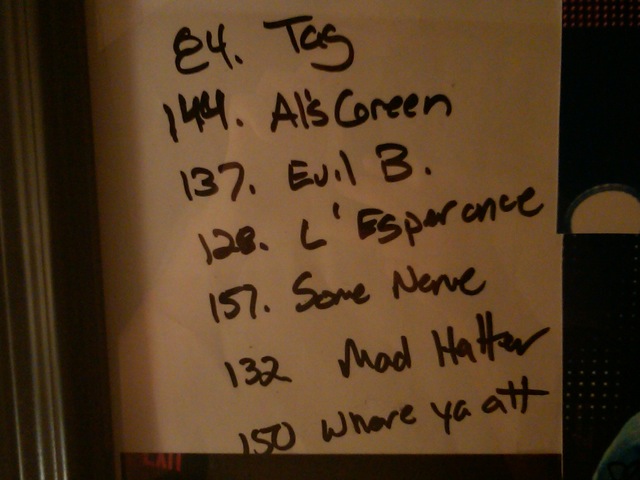 84. Tag
144. Al's Green
137. Evil B.
128. L'Esperance
157. Some Nerve
132 Mad Hatter
150 Where ya att
EXIT